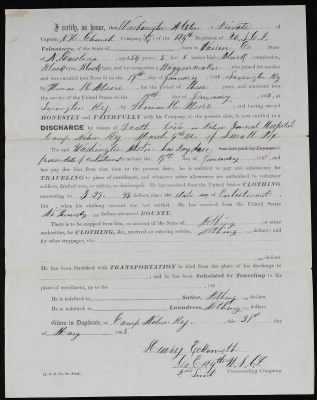 I certify, on honor, that Washington Alston a Private
Captain Company of the 124th Regiment of U.S.C.I.
Volunteers, of the State of born in Warren Co.
of N. Carolina aged 34 years; 5 feet inches high; Black complexion,
Black eyes, Black hair, and by occupation a Waggon maker, who joined for service
and was enrolled (see Note 2) on the 17th day of January 1865, at Lexington Ky
by Thomas H. Moore for the period of Three years, and mustered
into the service of the United States on the 17th day of January 1865, at
Lexington Ky, by Thomas H. Moore, and having served
HONESTLY and FAITHFULLY with his Company to the present date, is now entitled to a
DISCHARGE by reason of Death. Died in Nelson General Hospital
Camp Nelson Ky March 1865 of Small Pox
The said Washington Alston has pay due
from date of enlistment include the 17th day of January 1865, and
has pay due him from that time to the present date; he is entitled to pay and subsistence for
TRAVELING to place of enrollment, and whatever other allowances are authorized to volunteer
soldiers, drafted men, or militia, so discharged. He has received from the United States CLOTHING
amounting to $ dollars, since the date of Enlistment
186 , when his clothing account was last settled. He has received from the United States
dollars advanced BOUNTY.
There is to be stopped from him, on account of the State of Nothing or other
authorities, for CLOTHING, &c., received on entering service, Nothing dollars; and
for other stoppages, viz:
He has been furnished with TRANSPORTATION in kind from the place of his discharge to
; and he has been Subsisted for Traveling to his
place of enrollment, up to the
He is indebted to Sutler, Nothing dollars.
He is indebted to Laundress, Nothing dollars.
Given in Duplicate, at Camp Nelson Ky., this 31st day
of May 1865
Henry
Co 124th U.S.C.I.
Commanding Company.